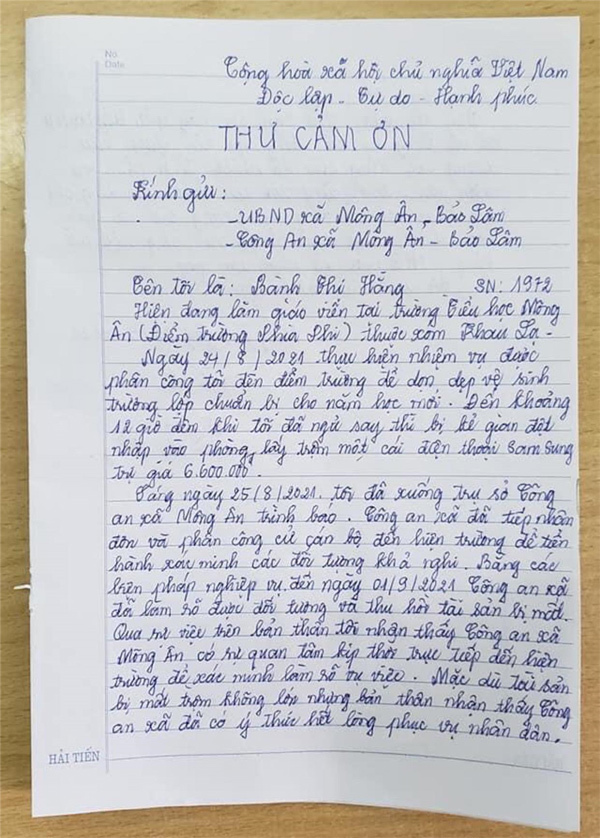 No
Date
Cộng hoà xã hội chủ nghĩa Việt Nam
Độc lập - Tự do - Hạnh phúc
THƯ CẢM ƠN
Kính gửi:
- UBND xã Mông Ân - Bảo Lâm
- Công An xã Mông Ân - Bảo Lâm
Tên tôi là: Bành Thị Hằng SN: 1972
Hiện đang làm giáo viên tại trường Tiểu học Mông
Ân (Điểm trường Phia Phi) thuộc xóm Khau Lạ -
Ngày 24/8/2021 thực hiện nhiệm vụ được
phân công tôi đến điểm trường để dọn dẹp vệ sinh
trường lớp chuẩn bị cho năm học mới. Đến khoảng
12 giờ đêm khi tôi đã ngủ say thì bị kẻ gian đột
nhập vào phòng lấy trộm một cái điện thoại Sam Sung
trị giá 6.600.000đ.
Sáng ngày 25/8/2021. tôi đã xuống trụ sở Công
an xã Mông Ân trình báo. Công an xã đã tiếp nhận
đơn và phân công cử cán bộ đến hiện trường để tiến
hành xác minh các đối tượng khả nghi. Bằng các
biện pháp nghiệp vụ. đến ngày 01/9/2021 Công an xã
đã làm rõ được đối tượng và thu hồi tài sản bị mất.
Qua sự việc trên bản thân tôi nhận thấy Công an xã
Mông Ân có sự quan tâm kịp thời trực tiếp đến hiện
trường để xác minh làm rõ vụ việc. Mặc dù tài sản
bị mất trộm không lớn nhưng bản thân nhận thấy Công
an xã đã có ý thức hết lòng phục vụ nhân dân.
HẢI TIẾN